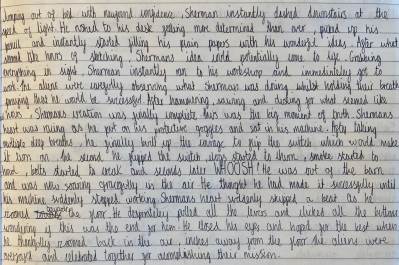 Jumping out of bed with newfound confidence, Sherman instantly dashed downstairs at the
speed of light. He rushed to his desk getting more determined than ever, picked up his
pencil and instantly started filling his plain papers with his wonderful ideas. After what
seemed like hours of sketching, Shermans idea could potentially come to life. Grabbing
everything in sight Sherman instantly ran to his workshop and immediately got to
work. The aliens were carefully observing what Sherman was doing whilst holding their breath
praying that he would be successful. After hammering, sawing and for what seemed like
hours, Shermans creation was finally complete. This was the big moment of truth. Shermans
heart was racing as he put on his protective goggles and sat in his machine. After taking
multiple deep breaths, he finally built up the courage to flip the switch which would make
it turn on. he flipped the switch, started to churn, smoke started to
bolts started to creak and seconds later WHOOSH! He was out of the barn
and was now soaring in the air. He thought he had made it successfully until
his machine suddenly stopped working. Shermans heart suddenly skipped a beat as he
zoomed the floor. He desperately pulled all the levers and clicked all the buttons
wondering if this was the end for him. He closes his eyes and hoped for the best when
he thankfully zoomed back in the air, inches away from the floor. The aliens were
overjoyed and celebrated together for accomplishing their mission.